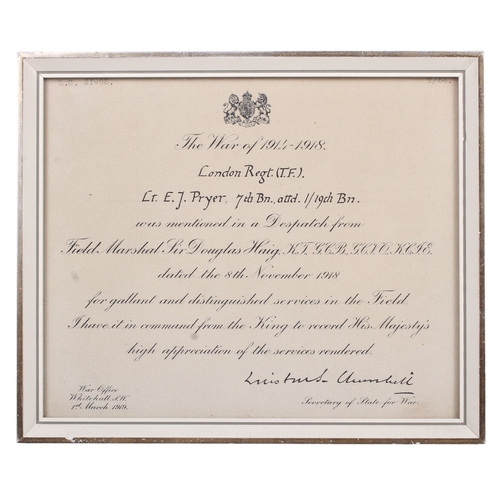 The War of 1914-1918.
London Regt. (T.F.).
Lt. E. J. Pryer, 7th Bn., attd. 1/19th Bn.
was mentioned in a Despatch from
Field Marshal Sir Douglas Haig, K.T., G.C.B., G.C.V.O., K.C.I.E.
dated the 8th November 1918
for gallant and distinguished services in the Field.
I have it in command from the King to record His Majesty's
high appreciation of the services rendered.
Winston S. Churchill
War Office
Whitehall, S.W.
1st March 1919.
Secretary of State for War.